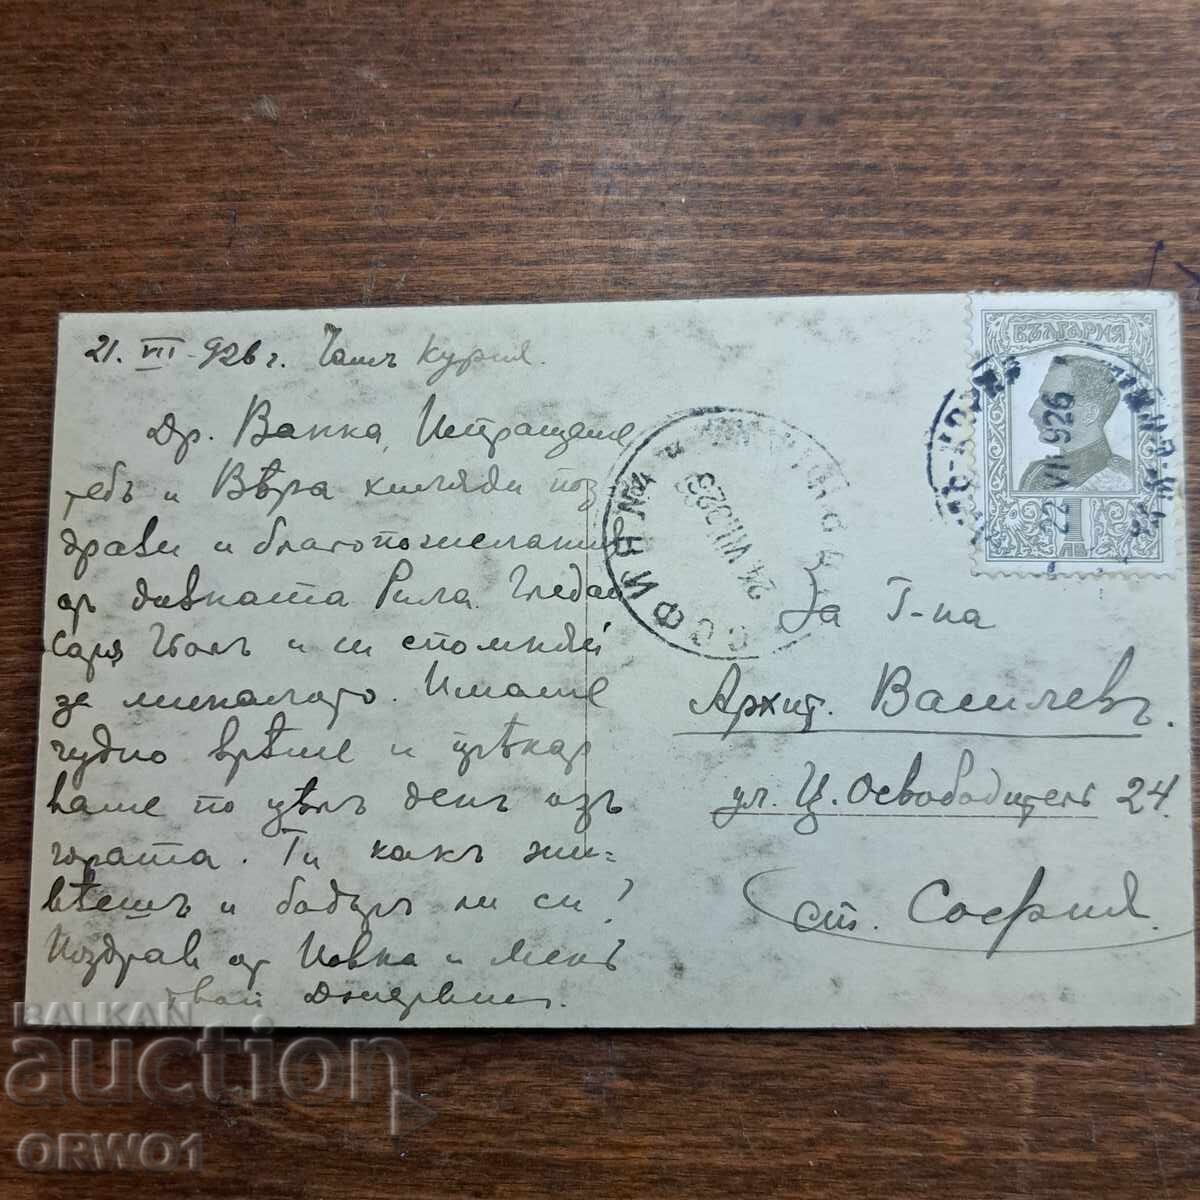 21. VII - 926 г. Чамъ Курия.
Др. Ванка, Изпращаме
тебъ и Вѣра хиляди поз
драви и благопожелания
отъ дивната Рила. Гледам
Саря Гьолъ и си спомняй
за миналото. Имаме
чудно врѣме и цѣкар
ваме по цѣлъ день изъ
гората. Ти какъ жи=
вѣешъ и бодъръ ли си?
Поздрав от Новка и Менъ
твой
БЪЛГАРИЯ
1
ЛВ.
22 VII 926
СОФИЯ №4
24 VII 926
За Г-на
Архит. Василевъ.
ул. Ц. Освободитель 24.
ст. София.
BALKAN
auction
ORWO1